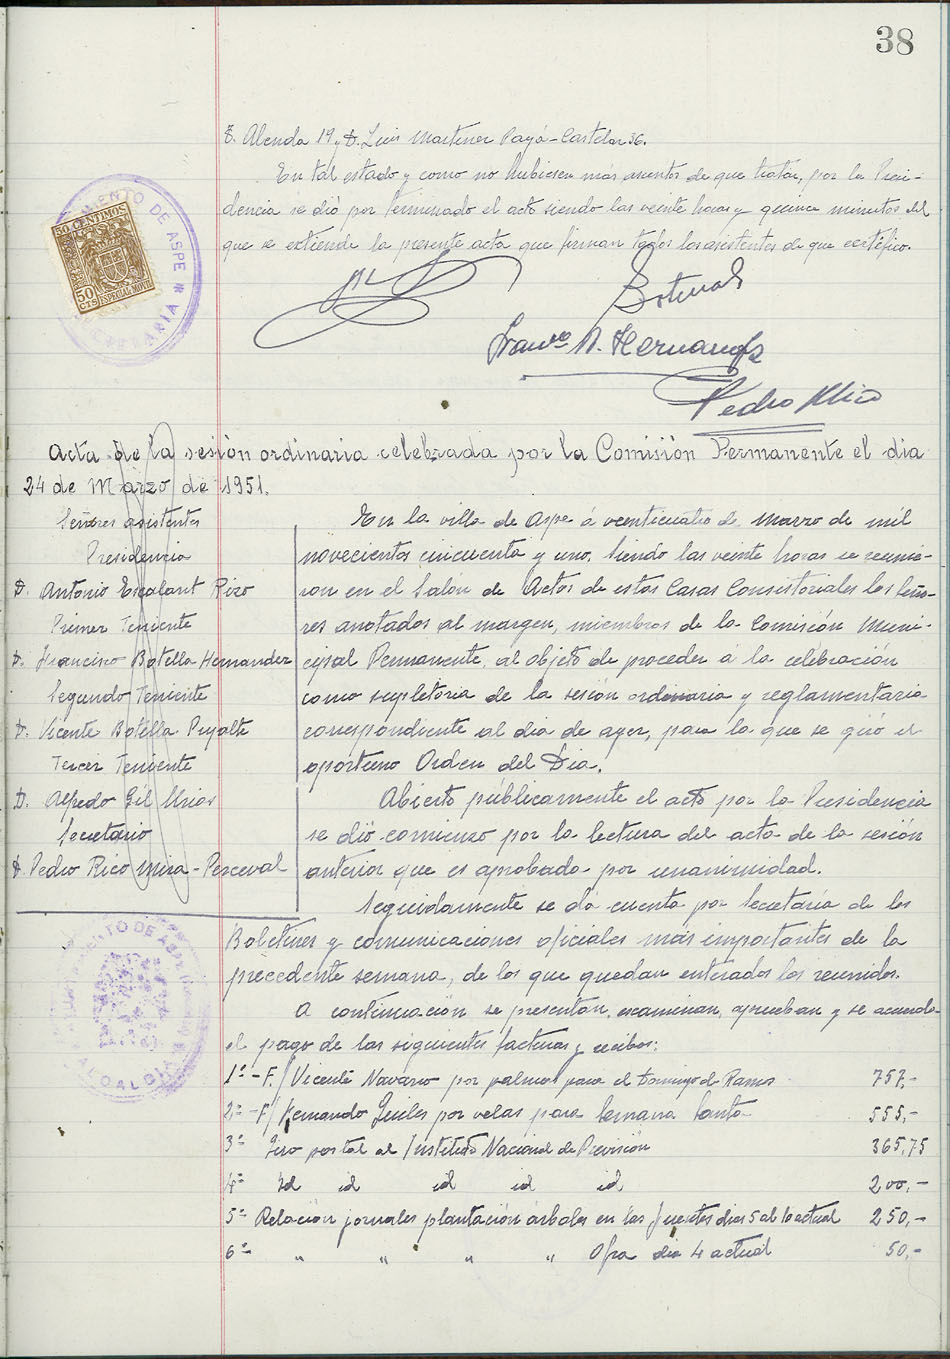 38
Alenda 19 y D. Luis Martinez Payá - Castelar 36.
En tal estado y como no hubiesen más asuntos de que tratar, por la Presi-
dencia se dió por terminado el acto siendo las veinte horas y quince minutos del
que se extiende la presente acta que firman todos los asistentes de que certifico.
AYUNTAMIENTO DE ASPE
SECRETARIA
50 CENTIMOS
50 CTS ESPECIAL MOVIL
Hernandez
Pedro Rico
Acta de la sesión ordinaria celebrada por la Comisión Permanente el dia
24 de Marzo de 1951.
Señores asistentes
Presidencia
D. Antonio Escalant Rizo
Primer Teniente
D. Francisco Botella Hernandez
Segundo Teniente
D. Vicente Botella Pujalte
Tercer Teniente
D. Alfredo Gil Mrias
Secretario
D. Pedro Rico Mira-Perceval
En la villa de Aspe á veinticuatro de Marzo de mil
novecientos cincuenta y uno, siendo las veinte horas se reunie-
ron en el Salón de Actos de estas Casas Consistoriales los Seño-
res anotados al margen, miembros de la Comisión Muni-
cipal Permanente, al objeto de proceder á la celebración
como supletoria de la sesión ordinaria y reglamentaria
correspondiente al dia de ayer, para lo que se giró el
oportuno Orden del Dia.
Abierto públicamente el acto por la Presidencia
se dió comienzo por la lectura del acta de la sesión
anterior que es aprobada por unanimidad.
Seguidamente se da cuenta por Secretaría de los
Boletines y comunicaciones oficiales más importantes de la
precedente semana, de los que quedan enterados los reunidos.
A continuación se presentan, examinan, aprueban y se acuerda
el pago de las siguientes facturas y recibos:
1º - F./ Vicente Navarro por palmas para el Domingo de Ramos 757,-
2º - F/ Hernando por velas para Semana Santa 555,-
3º Giro postal al Instituto Nacional de Previsión 365,75
4º Id id id id id 200,-
5º Relación jornales plantación árboles en las fuentes dias 5 al 10 actual 250,-
6º " " " " Ofra dia 4 actual 50,-
AYUNTAMIENTO DE ASPE
ALCALDIA